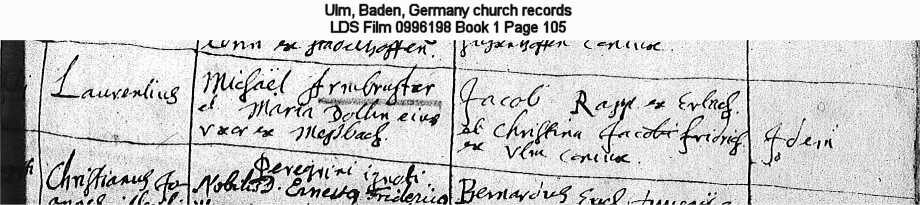 Ulm, Baden, Germany church records
LDS Film 0996198 Book 1 Page 105
Coniux.
Laurentius
Michaël Armbruster
et Maria Dollin eius
uxor ex Mesbach.
Jacob Rapp ex Erlach
et Christina Jacobi Fridrich
ex Ulm coniux.
Idem
Christianus
Peregrini ignoti
Nobilis D. Ernestus Fridericus
Bernardus